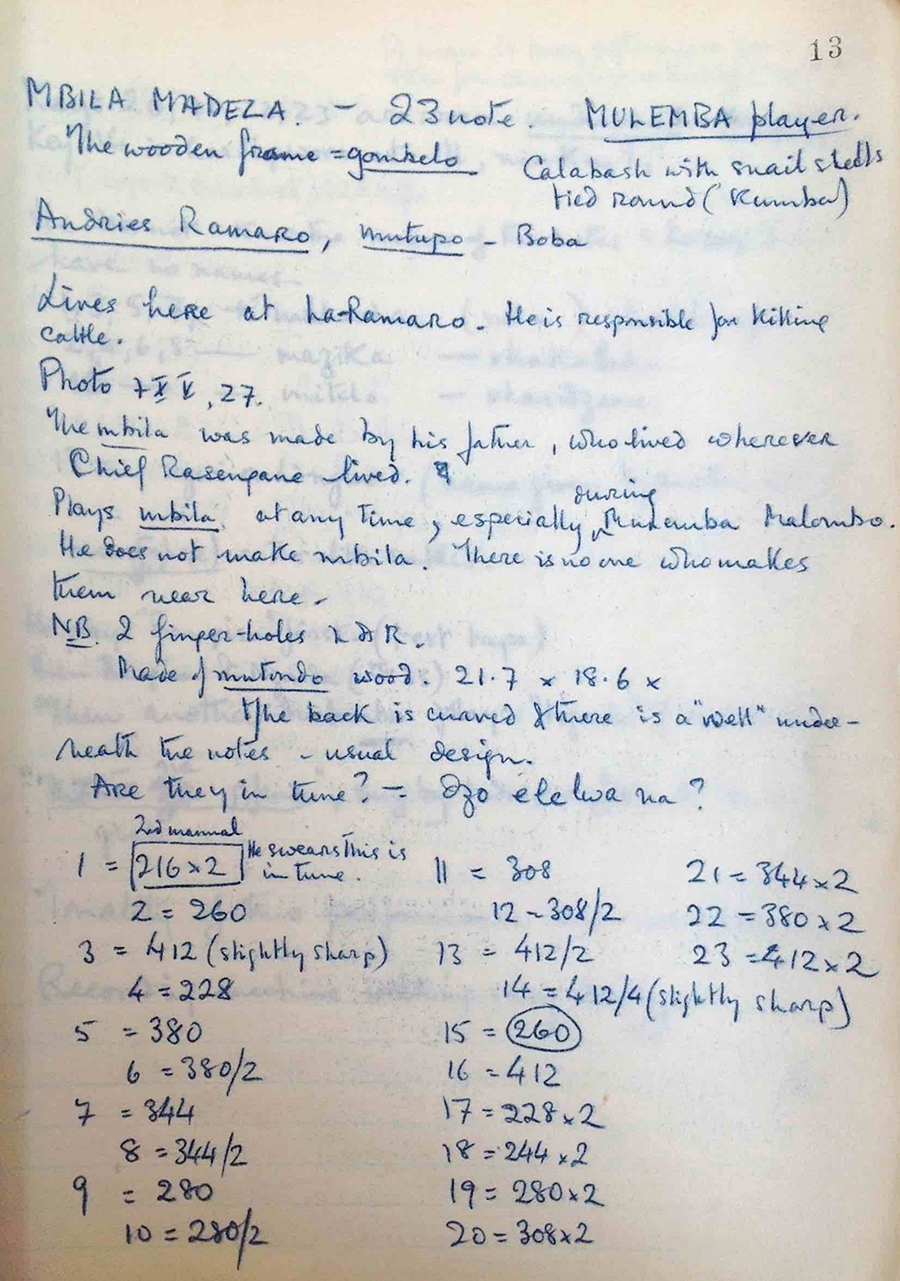 13
MBILA MADEZA. – 23 note. MULEMBA player.
The wooden frame = gombelo
Calabash with snail shells
tied round (Kumba)
Andries Ramaro, mutupo – Boba
Lives here at ha-Ramaro. He is responsible for killing
cattle.
Photo 7 X V, 27.
The mbila was made by his father, who lived wherever
Chief Rasengane lived.
during
Plays mbila at any time, especially Mulemba Malombo.
He does not make mbila. There is no one who makes
them near here.
NB. 2 finger-holes L & R.
Made of mutondo wood. 21.7 x 18.6 x
The back is curved & there is a "well" under-
neath the notes – usual design.
Are they in tune? – Dzo elelwa na?
2nd manual
1 = 216 x 2 He swears this is
in tune.
2 = 260
3 = 412 (slightly sharp)
4 = 228
5 = 380
6 = 380/2
7 = 344
8 = 344/2
9 = 280
10 = 280/2
11 = 308
12 – 308/2
13 = 412/2
14 = 412/4 (slightly sharp)
15 = 260
16 = 412
17 = 228 x 2
18 = 244 x 2
19 = 280 x 2
20 = 308 x 2
21 = 344 x 2
22 = 380 x 2
23 = 412 x 2